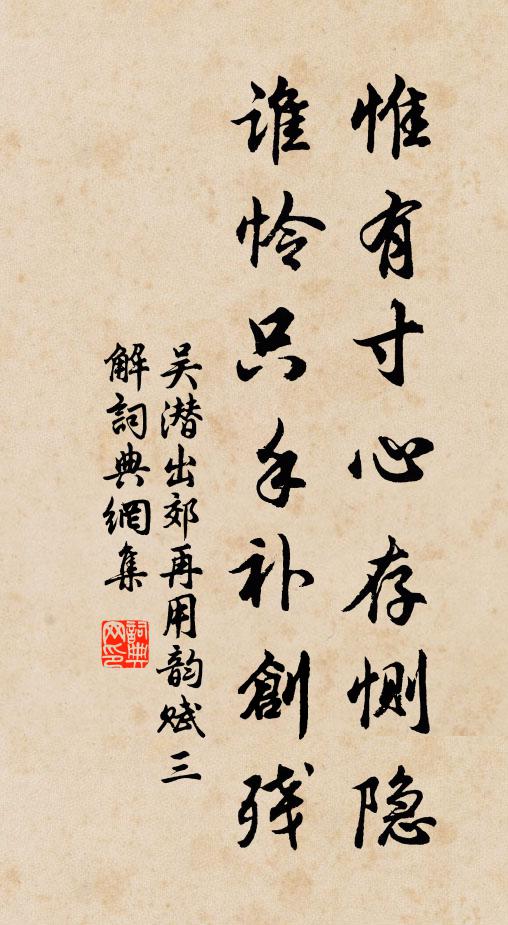 惟有寸心存恻隐
谁怜只手补創残
吴潜出郊再用韵赋三
解詞典網集
詞典
网印